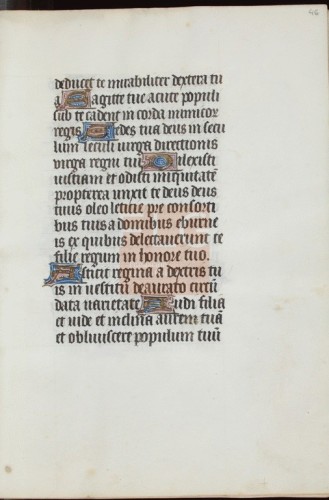 46
deducet te mirabiliter dextera tu
a Sagitte tue acute populi
sub te cadent in corda inimicor
regis Sedes tua deus in secu
lum seculi virga directionis
virga regni tui Dilexisti
iusticiam et odisti iniquitatē
propterea unxit te deus deus
tuus oleo leticie pre consorti
bus tuis a domibus eburne
is ex quibus delectaverunt te
filie regum in honore tuo.
Astitit regina a dextris tu
is in vestitu deaurato circū
data varietate Audi filia
et vide et inclina aurem tuā
et obliviscere populum tuū